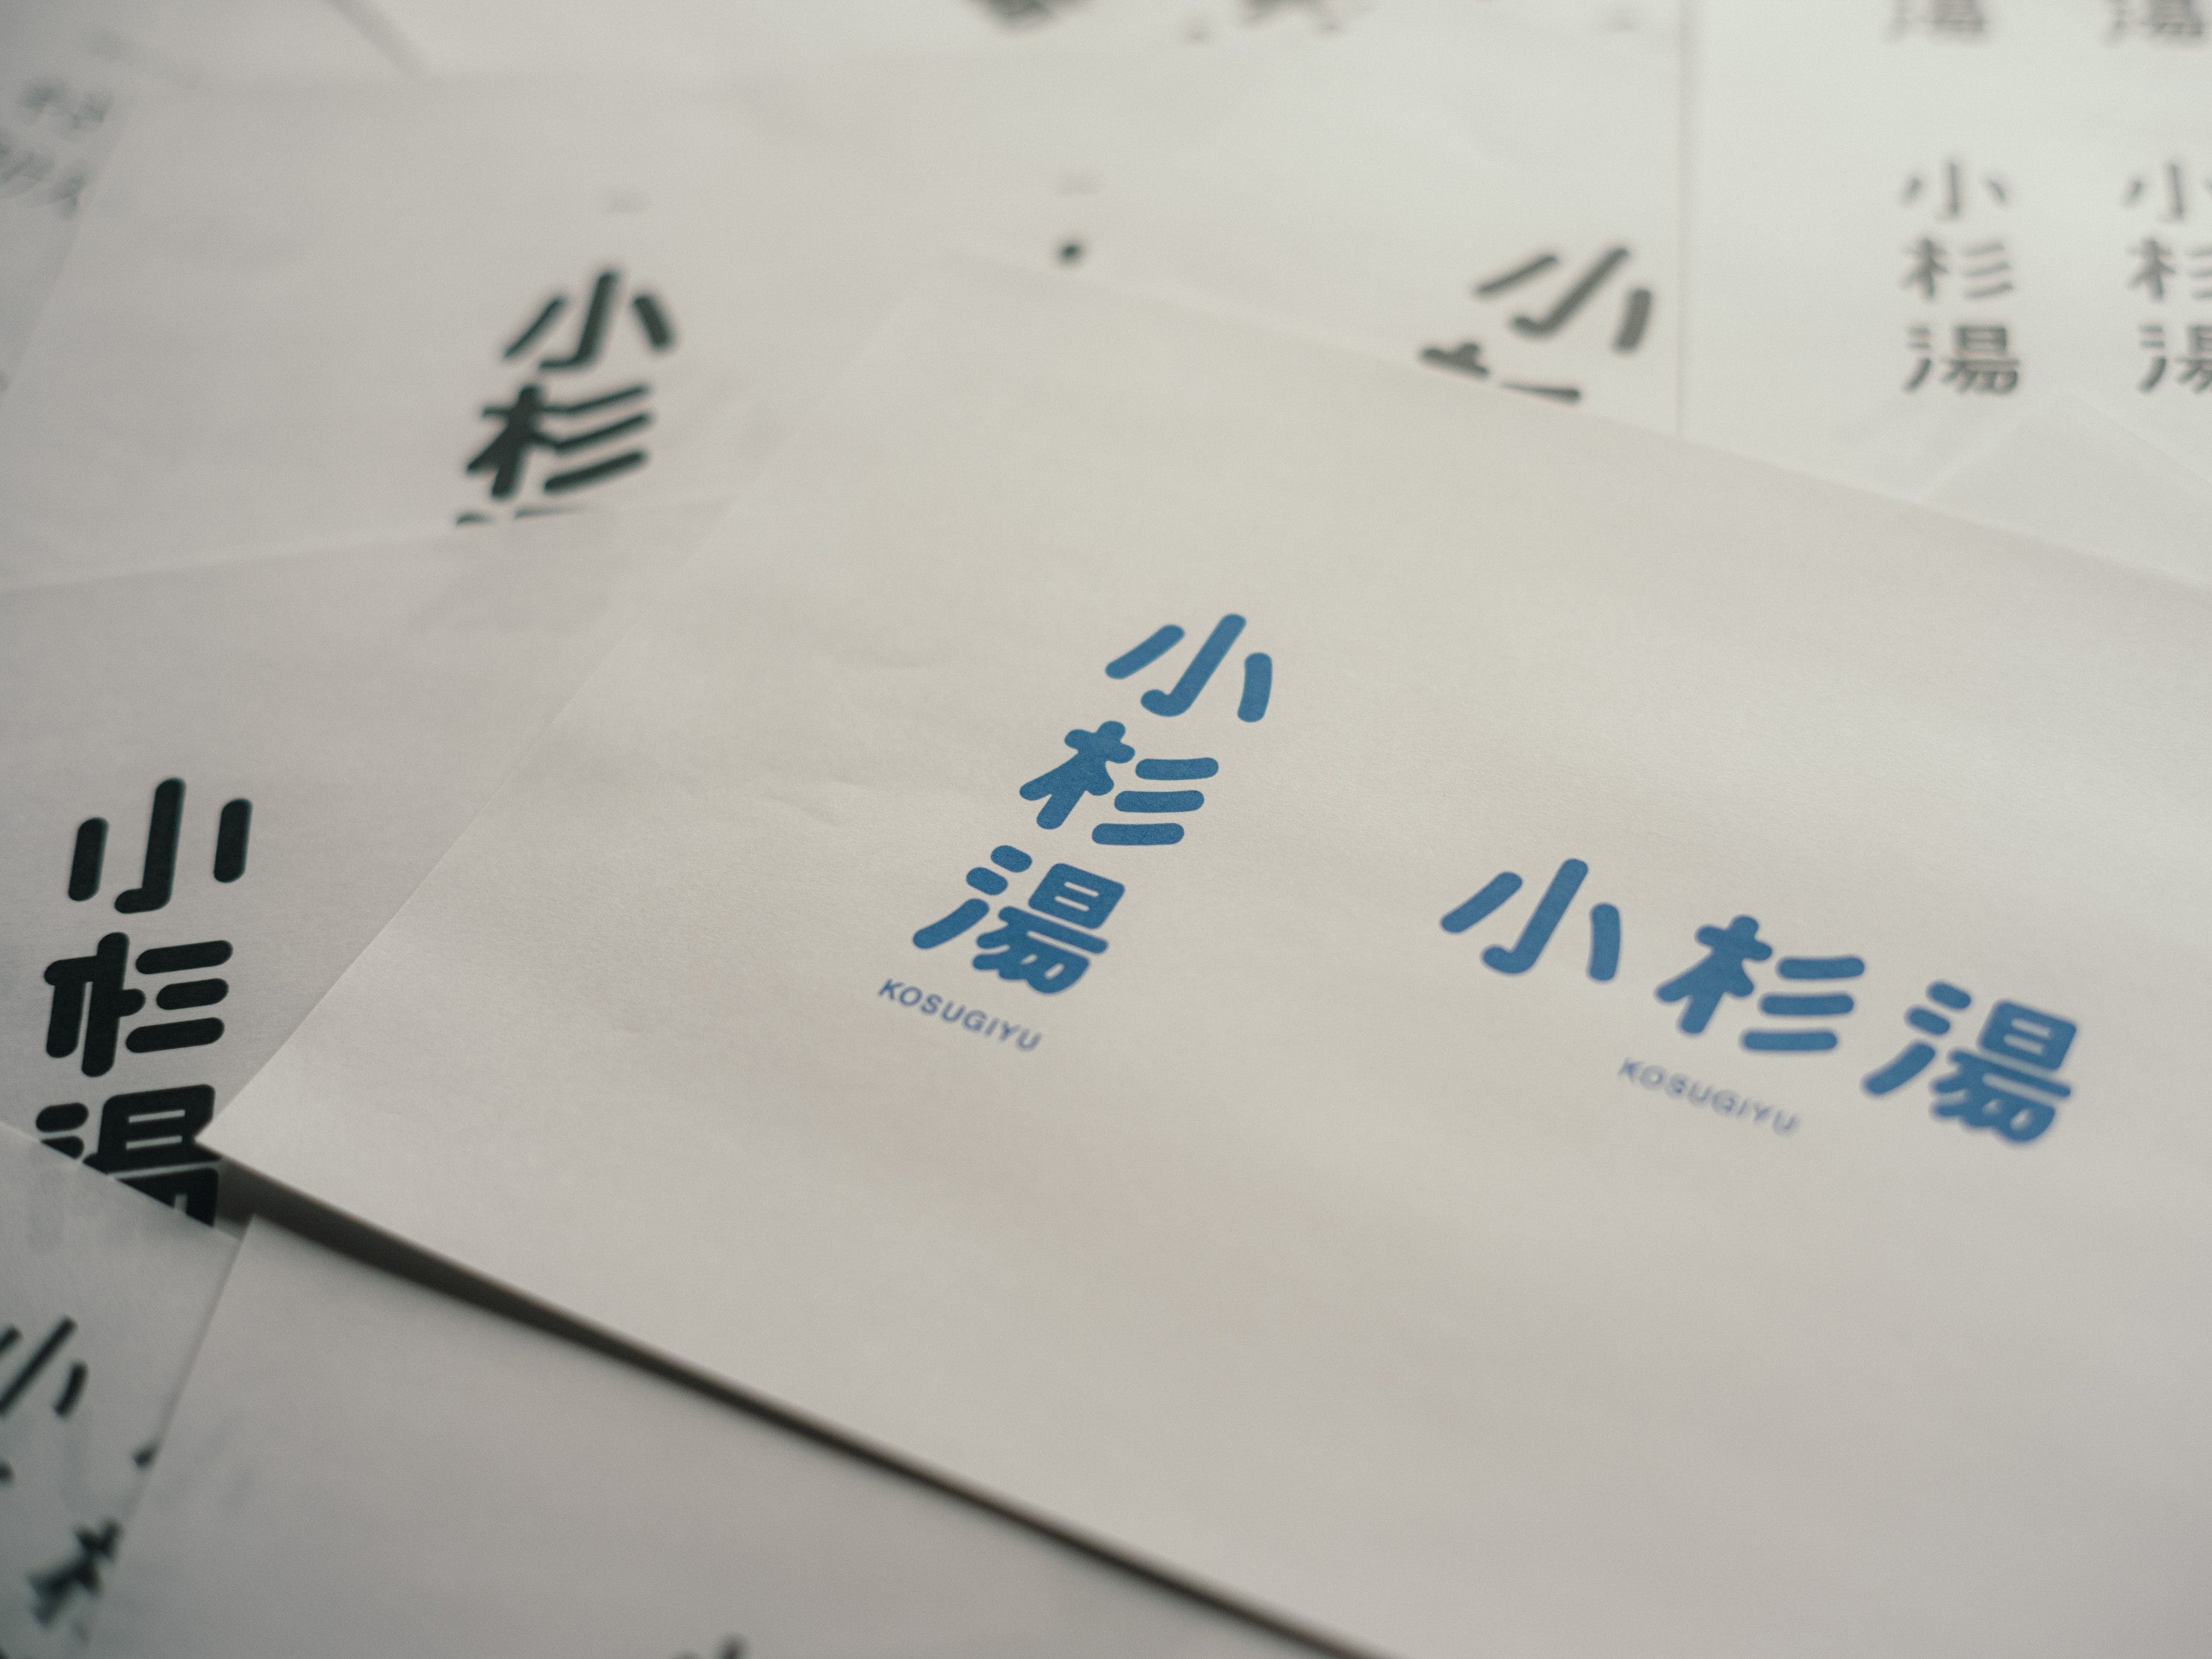 小杉湯
小杉湯
小
小杉
小
小杉湯
KOSUGIYU
小杉湯
KOSUGIYU
小杉湯
小